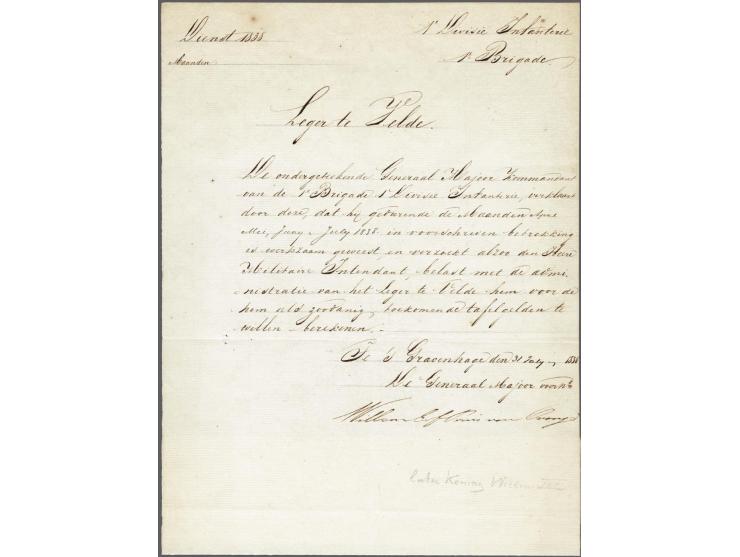 Dienst 1838
1e Divisie Infanterie
Maanden
1e Brigade
Leger te Velde.
De ondergeteekende Generaal Majoor Kommandant
van de 1e Brigade 1e Divisie Infanterie, verklaart
door deze, dat hij gedurende de Maanden April
Mei, Juny, July 1838, in voorschreven betrekking
is werkzaam geweest, en verzoekt alzoo den Heere
Militaire Intendant, belast met de admi
nistratie van het Leger te Velde hem voor de
hem als zoodanig, toekomende tafelgelden te
willen berekenen.-
Te 's Gravenhage den 31 July 1838
De Generaal Majoor voornd
Willem Erf Prins van Oranje
later Koning Willem III